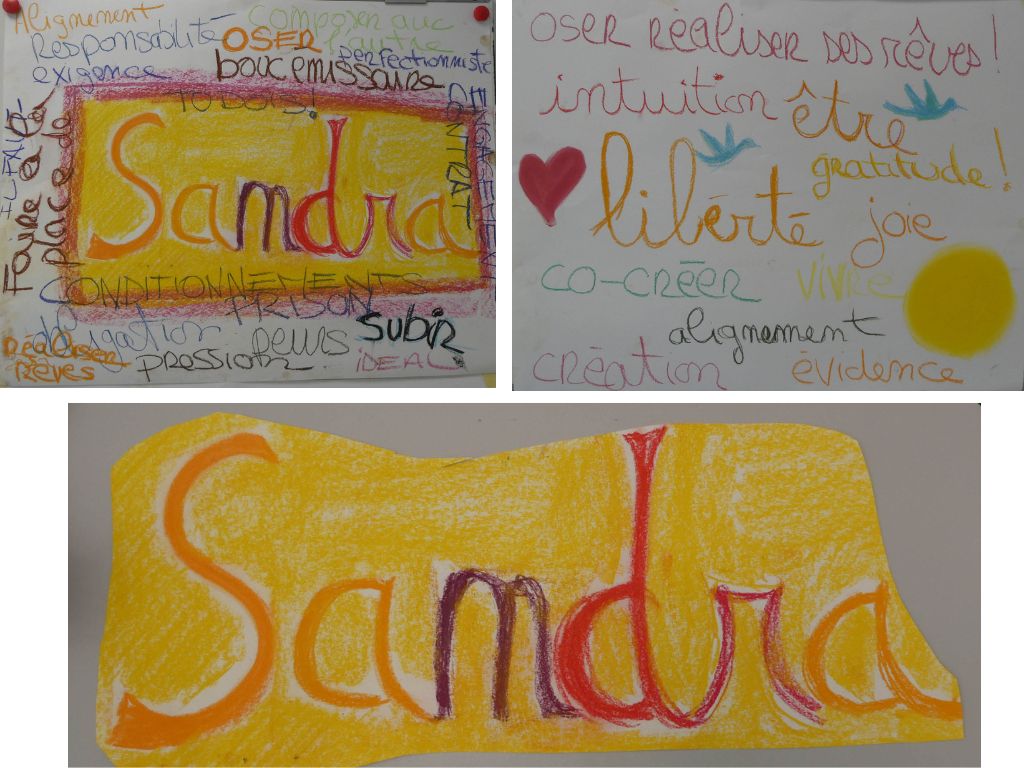 Alignement
Composer avec
l'autre
Responsabilité
OSER
perfectionniste
exigence
bouc émissaire
TU DOIS!
IL FAUT
Faire à la
place de
Sandra
CONDITIONNEMENTS
PRISON
obligation
peurs
subir
RÉALISER
RÊVES
pression
IDEAL
OSER RÉALISER SES RÊVES!
intuition
être
gratitude!
liberté
joie
CO-CRÉER
VIVRE
alignement
CRÉATION
évidence
Sandra